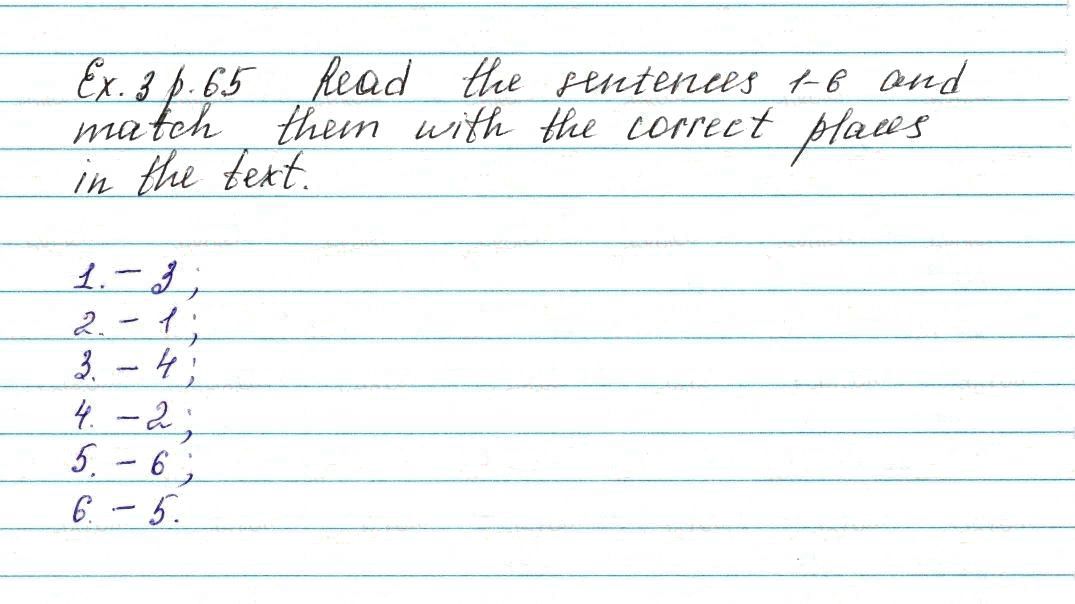 Ex. 3 p. 65 Read the sentences 1-6 and
match them with the correct places
in the text.
1. - 3 ;
2. - 1 ;
3. - 4 ;
4. - 2 ;
5. - 6 ;
6. - 5.